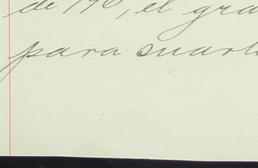 de 190, el gra
para cuart